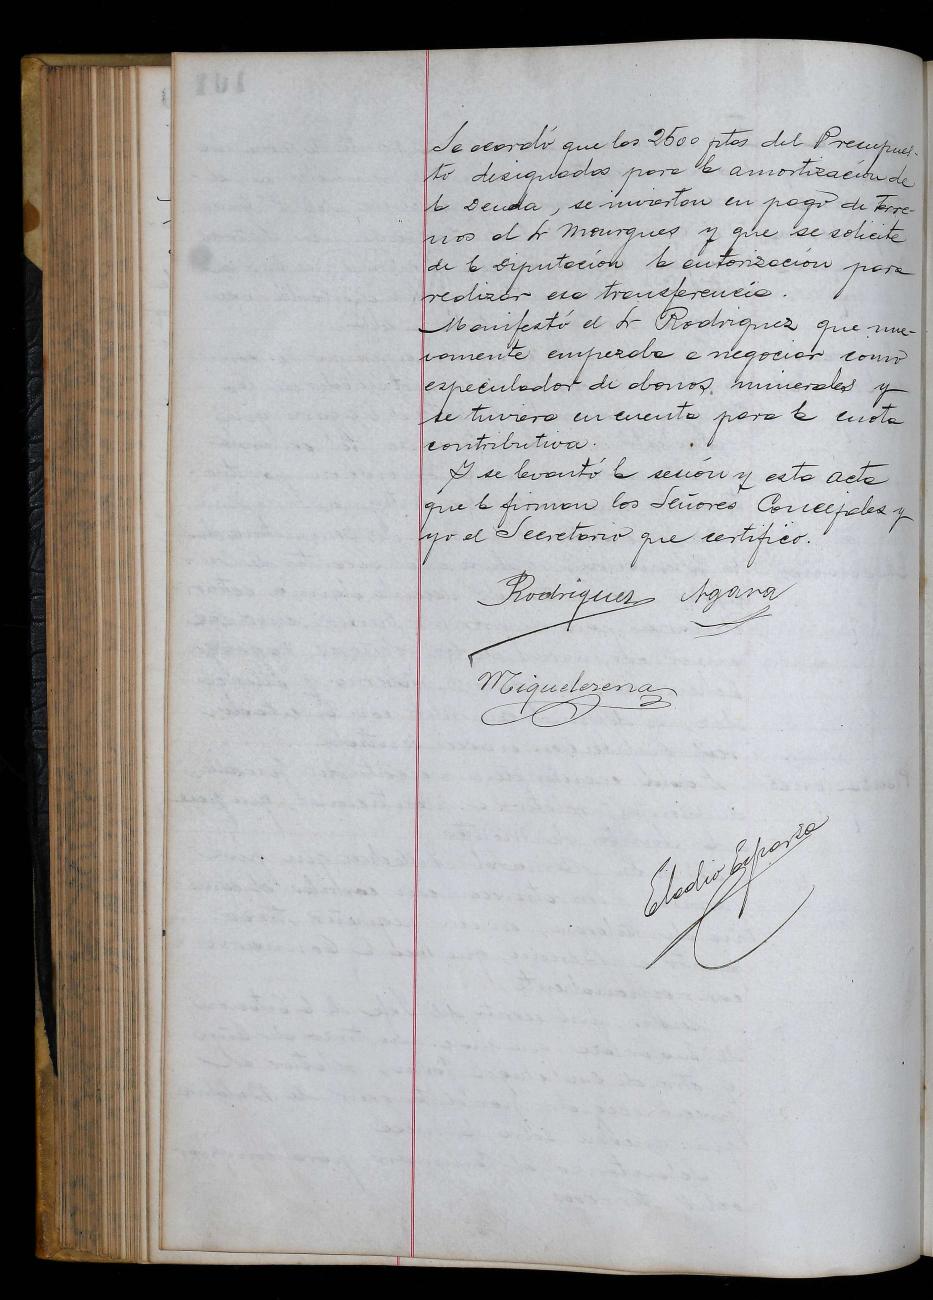 Se acordó que las 2500 ptas del Presupues-
to designadas para la amortización de
la Deuda, se inviertan en pago de terre-
nos al Sr Mourgues y que se solicite
de la Diputación la autorización para
realizar esa transferencia.
Manifestó el Sr Rodriguez que nue-
vamente empezaba a negociar como
especulador de abonos minerales y
se tuviera en cuenta para la cuota
contributiva.
Y se levantó la sesión y esta acta
que la firman los Señores Concejales y
yo el Secretario que certifico.
Rodriguez
Miquelezena
Eladio Esparza